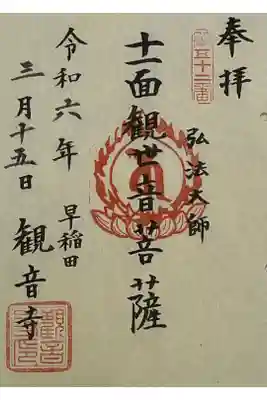 奉拝
弘法大師
十一面観世音菩薩
令和六年
三月十五日
早稲田
観音寺